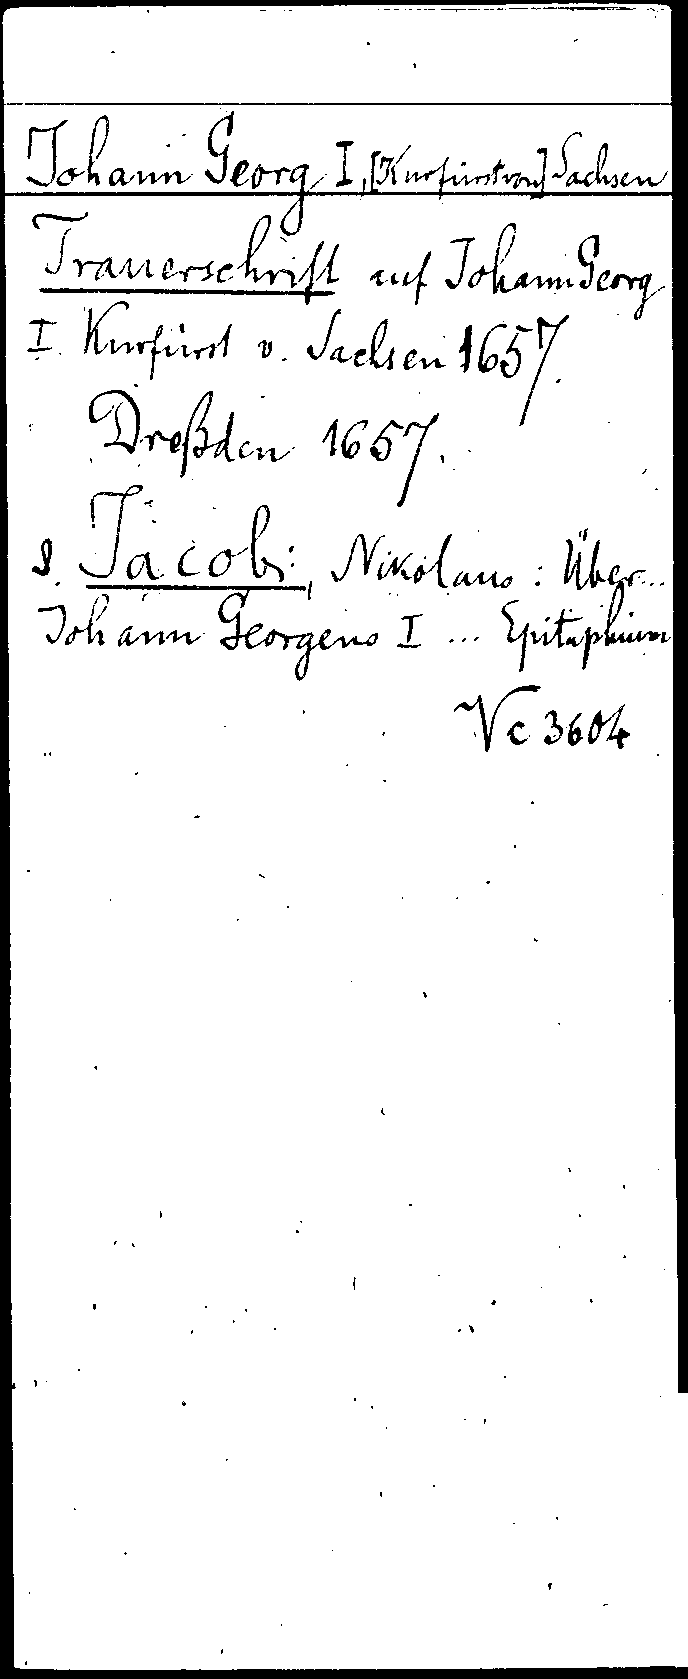 Johann Georg I, [Kurfürst von] Sachsen
Trauerschrift auf Johann Georg
I. Kurfürst v. Sachsen 1657.
Dreßden 1657.
s. Jacobi, Nikolaus: Über...
Johann Georgens I ... Epitaphium
Vc 3604